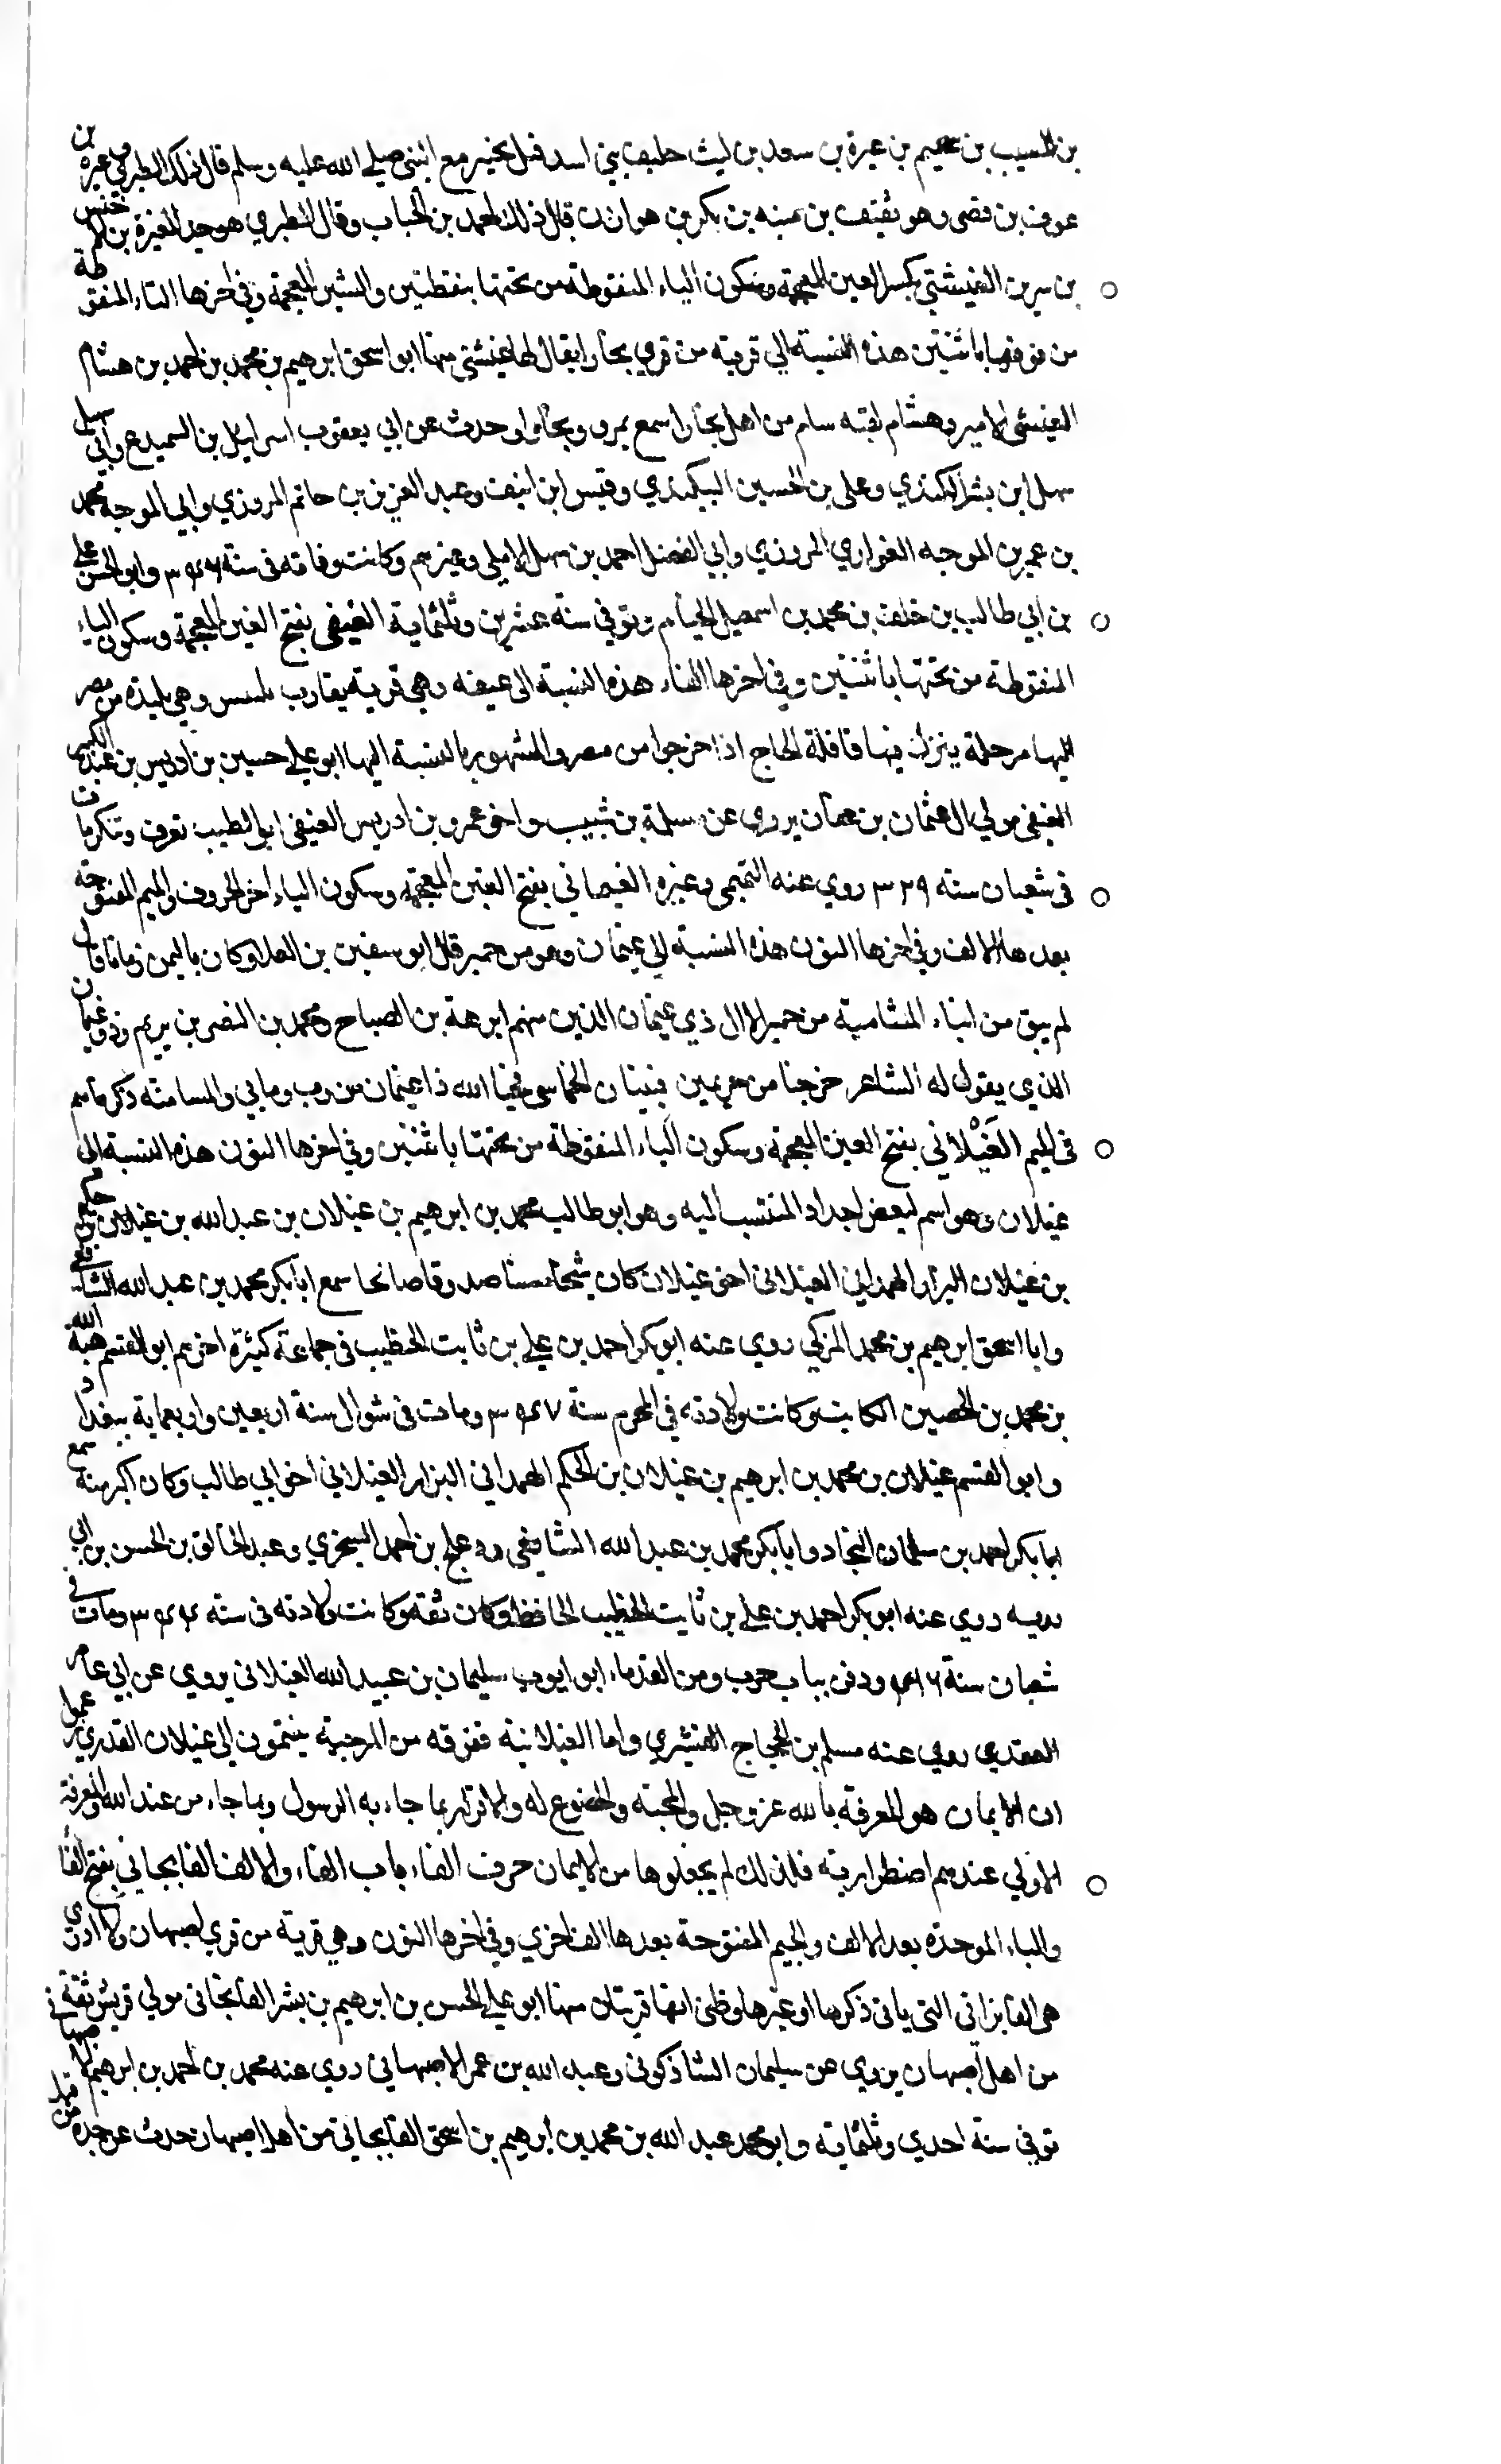 بن المسيب بن سحيم بن غيرة بن سعد بن ليث حليف بني اسد قتل بخيبر مع النبي صلى الله عليه وسلم قال ذلك الطبري وغيرة بن
عوف بن قصى وهو ثقيف بن منبه بن بكر بن هوازن قال ذلك احمد بن الحباب وقال الطبري هو جد المغيرة بن اخنس
بن سرين الغيشتي بكسر الغين المعجمة وسكون الياء المنقوطة من تحتها بنقطتين والشين المعجمة وفي اخرها التاء المنقوطة
من فوقها باثنتين هذه النسبة الى قرية من قري بخارا يقال لها غيشتى منها ابو اسحق ابرهيم بن محمد بن احمد بن هشام
الغيشتى الامير وهشام لقبه سام من اهل بخارا سمع بمرو وبخارا وحدث عن ابي يعقوب اسرائيل بن السميدع وابي سهيل
سهل ابن بشر الكندي وعلى بن الحسين البيكندي وقيس ابن انيف وعبد العزيز بن حاتم المروزي وابي الموجه محمد
بن عمرو بن الموجه الفزاري المروزي وابي الفضل احمد بن سهل الاملي وغيرهم وكانت وفاته في سنة ٣٤٦ وابو الحسن علي
بن ابي طالب بن خلف بن محمد بن اسمعيل الخيام وتوفي سنة عشرين وثلثماية الغيفي بفتح الغين المعجمة وسكون الياء
المنقوطة من تحتها باثنتين وفي اخرها الفاء هذه النسبة الى غيفه وهي قرية يقارب بلبيس وهي بليدة من مصر
اليها مرحلة ينزل فيها قافلة الحاج اذا خرجوا من مصر والمشهور بالنسبة اليها ابو علي حسين بن ادريس بن عبد الكبير
الغيفي مولى ال عثمان بن عفان يروي عن سلمة بن شبيب واخوه عمرو بن ادريس الغيفي ابو الطيب تعرف وتنكر مات
في شعبان سنة ٣٢٩ روي عنه التميمي وغيره الغيماني بفتح الغين المعجمة وسكون الياء اخر الحروف والميم المفتوحة
بعدها الالف وفي اخرها النون هذه النسبة الى غيمان وهو من حمير قال ابو سفين بن العلا وكان باليمن زمانا قال
لم يبق من ابناء المثامنة من حمير الا ال ذي غيمان الذين منهم ابرهة بن الصباح ومحمد بن النضر بن يريم وذو غيمان
الذي يقول له الشاعر خرجنا من فتيان الله ذا غيمان والمثامنة ذكرتهم
في الميم الغَيْلاني بفتح الغين المعجمة وسكون الياء المنقوطة من تحتها باثنتين وفي اخرها النون هذه النسبة الى
غيلان وهو اسم لبعض اجداد المنتسب اليه وهو ابو طالب محمد بن ابرهيم بن غيلان بن عبد الله بن غيلان بن حكيم
بن غيلان البزاز الهمداني الغيلاني اخو غيلان كان شيخا مسنا صدوقا صالحا سمع ابا بكر محمد بن عبد الله الشافعي
وابا اسحق ابرهيم بن محمد المزكي روي عنه ابو بكر احمد بن علي بن ثابت الخطيب في جماعة كثيرة اخرهم ابو القسم هبة الله
بن محمد بن الحصين الكاتب وكانت ولادته في المحرم سنة ٣٤٧ ومات في شوال سنة اربعين واربعماية ببغداد
وابو القسم غيلان بن محمد بن ابرهيم بن غيلان بن الحكم الهمداني البزاز الغيلاني اخو ابي طالب وكان اكبر منه سمع
ابا بكر احمد بن سلمان النجاد وابا بكر محمد بن عبد الله الشافعي ودعلج بن احمد السجزي وعبد الخالق بن الحسن بن ابي
روي عنه ابو بكر احمد بن علي بن ثابت الخطيب الحافظ وكان ثقة وكانت ولادته في سنة ٣٤٤ ومات في
شعبان سنة ٤١٦ ودفن بباب حرب ومن القدماء ابو ايوب سليمان بن عبيد الله الغيلاني يروي عن ابي عامر
العقدي روي عنه مسلم بن الحجاج القشيري واما الغيلانية ففرقة من المرجية ينتمون الى غيلان القدري
ان الايمان هو المعرفة بالله عز وجل والمحبة والخضوع له والاقرار بما جاء به الرسول وبما جاء من عند الله والمعرفة
الاولي عندهم اضطرارية فلذلك لم يجعلوها من الايمان حرف الفاء باب الفاء والالف الفابجاني بفتح الفا
والباء الموحدة بعد الالف والجيم المفتوحة بعدها الف اخرى وفي اخرها النون وهي قرية من قري اصبهان ولا ادري
هي الفابزاني التي ياتي ذكرها او غيرها وظني انها قريتان منها ابو علي الحسن بن ابرهيم بن بشر الفابجاني مولى قريش ثقة
من اهل اصبهان يروي عن سليمان الشاذكوني وعبد الله بن عمر الاصبهاني روي عنه محمد بن احمد بن ابرهيم الاصبهاني
توفي سنة احدي وثلثماية وابو محمد عبد الله بن محمد بن ابرهيم بن اسحق الفابجاني من اهل اصبهان حدث عن جده من قبل